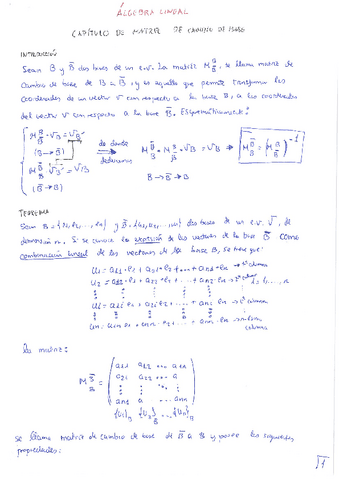 ÁLGEBRA LINEAL
CAPÍTULO DE MATRIZ DE CAMBIO DE BASE
INTRODUCCIÓN
Sean B y B̅ dos bases de un e.v. La matriz M, se llama matriz de
cambio de base de B a B̅, y es aquella que permite transformar las
coordenadas de un vector v con respecto a la base B, a las coordenadas
del vector v con respecto a la base B̅. Esquemáticamente:
de donde
deducimos
(B → B̅)
(B̅ → B)
B → B̅ → B
TEOREMA
Sean B = {e₁, e₂, ..., eₙ} y B̅ = {u₁, u₂, ..., uₙ} dos bases de un e.v. V, de
dimensión n. Si se conoce la expresión de los vectores de la base B̅ como
combinación lineal de los vectores de la base B, se tiene que:
u₁ = a₁₁·e₁ + a₂₁·e₂ + ... + aₙ₁·eₙ → 1ª columna
u₂ = a₁₂·e₁ + a₂₂·e₂ + ... + aₙ₂·eₙ → 2ª columna
La matriz:
a₁₁ a₁₂ ... a₁ₙ
a₂₁ a₂₂ ... a₂ₙ
aₙ₁ ... aₙₙ
se llama matriz de cambio de base de B̅ a B y posee las siguientes
propiedades:
1